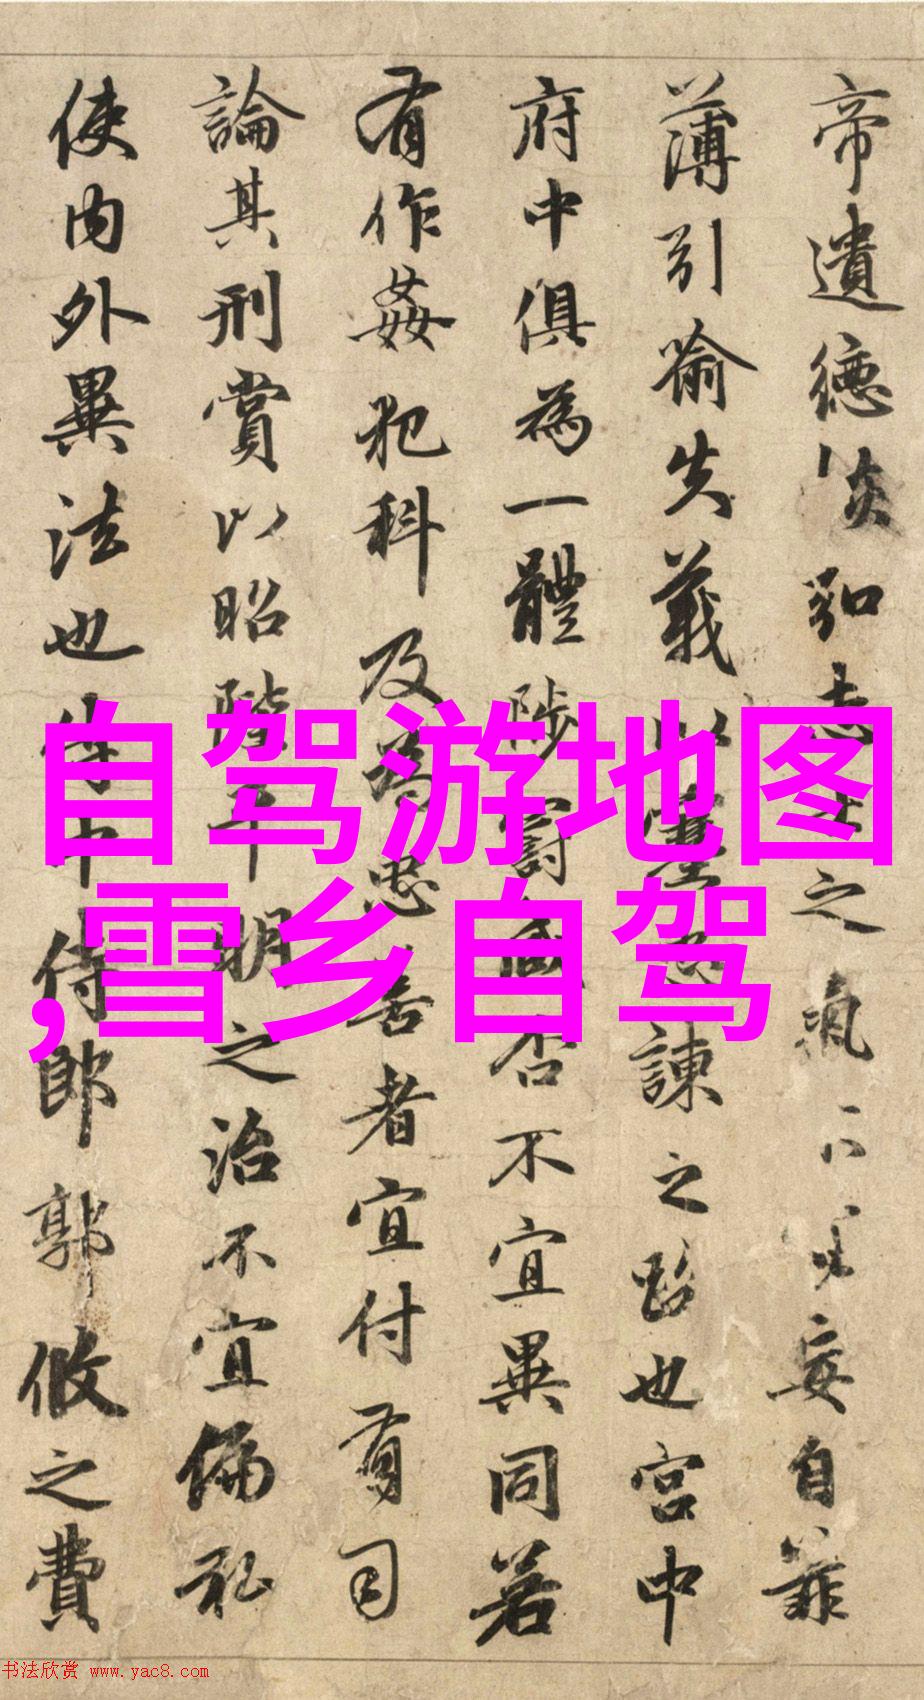 帝遺德恢弘志士之氣不妄自菲
薄引喻失義以塞忠諫之路也宮中
府中俱為一體陟罰臧否不宜異同若
有作姦犯科及為忠善者宜付有司
論其刑賞以昭平明之治不宜偏私
使内外異法也侍中侍郎郭攸之費
自驾游地图
,雪乡自驾
书法欣赏 www.yac8.com